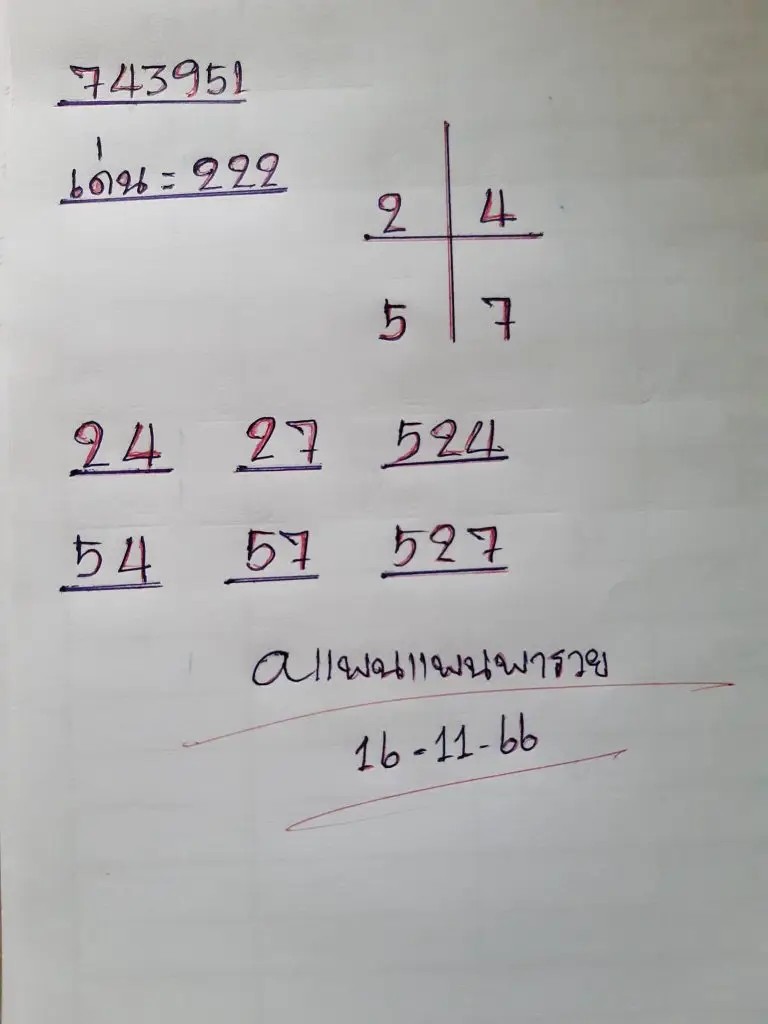 743951
เด่น = 222
2 4
5 7
24 27 524
54 57 527
aแพนแพนพารวย
16-11-66